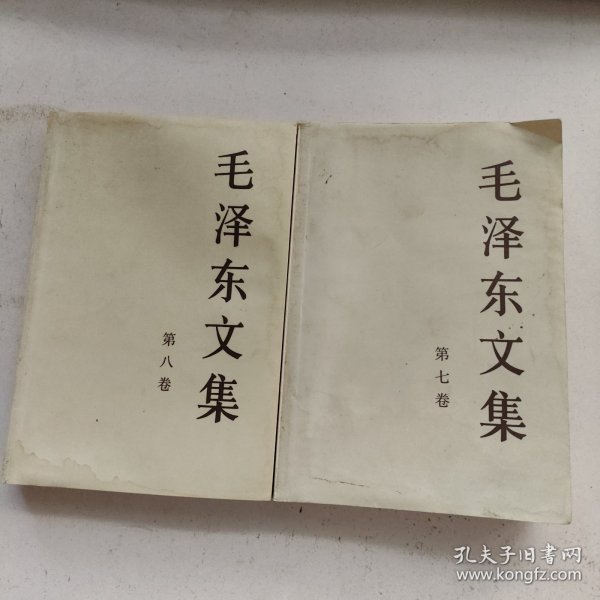 毛泽东文集
第八卷
毛泽东文集
第七卷
孔夫子旧书网
www.kongfz.com